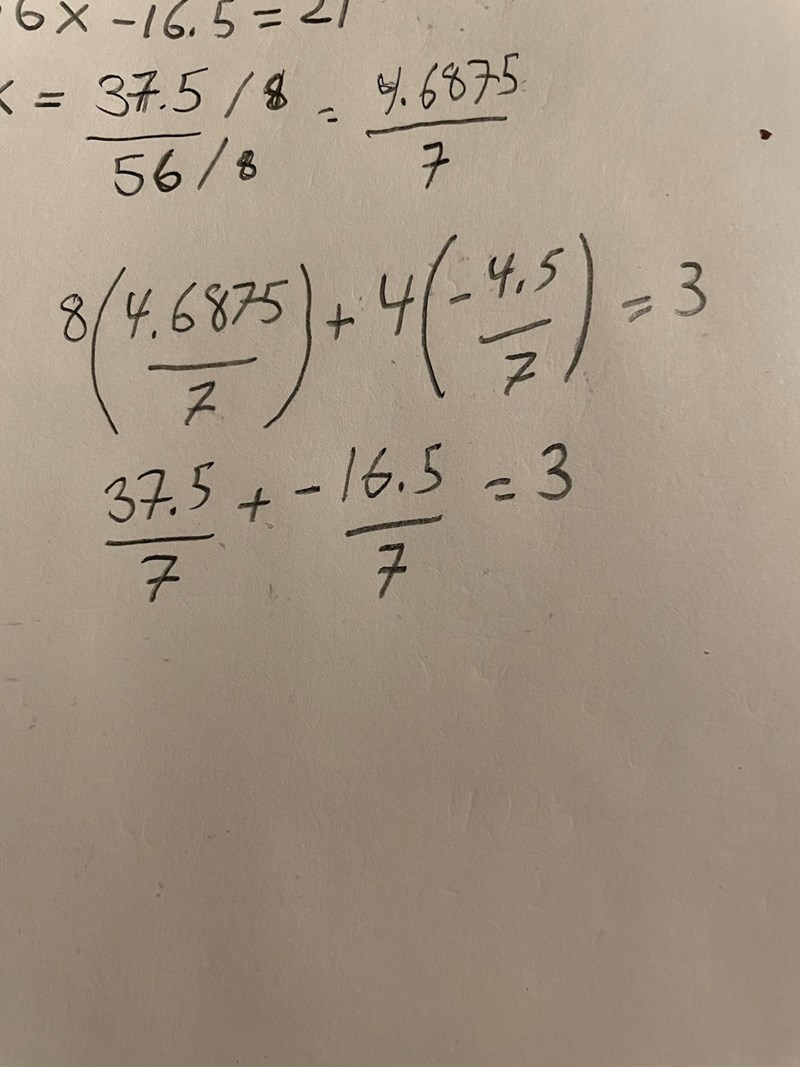 6x - 16.5 = 21
x = 37.5 / 8 / 56 / 8 = 4.6875 / 7
8(4.6875 / 7) + 4(- 4.5 / 7) = 3
37.5 / 7 + - 16.5 / 7 = 3